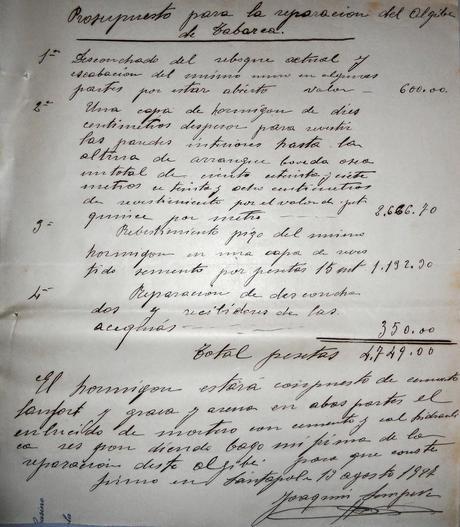 Prosupuesto para la reparacion del Algibe
de Tabarca.
1ª Desconchado del reboque actual y
escabacion del mismo muro en algunas
partes por estar abierto valor — 600.00
2ª Una capa de hormigon de dies
centimetros despesor para revestir
las paredes interiores hasta la
altura de arranque boveda osea
un total de ciento setenta y siete
metros y ocho centimetros
de revestimiento por el valor de
quince por metro — 2.666.70
3ª Rebestimiento piso del mismo
hormigon en una capa de reves
tido semento por pesetas 15 mt 1.192.30
4ª Reparacion de desconcha
dos y recibideros de las
acequias — 350.00
Total pesetas 4749.00
El hormigon estara compuesto de cemento
y grava y arena en abas partes el
enlucido de mortero con cemento y cal hidrauli
ca respondiendo bago mi firma de la
reparacion deste algibe para que conste
firmo en Santapola 13 agosto
Joaquin Sempere